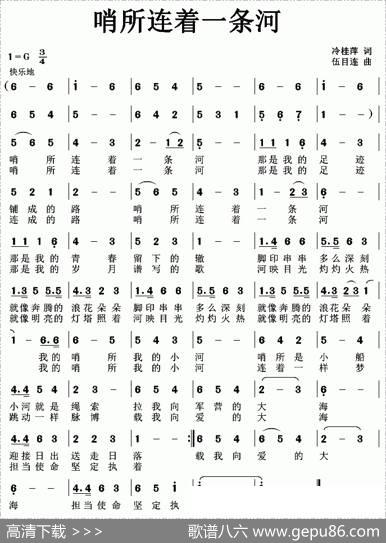 哨所连着一条河
1=G 3/4
冷桂萍 词
伍目连 曲
快乐地
(6 - 6 | i - 6 | 6 5 4 | 5 - - | 6 - 6 | i - 6 |
6 2 6 | 5 - - | 6 5 4 | 3 2 1 | 5 6 7 | 1 - - ) |
5 6 5 | 4 - 3 | 2 - 1 2 | 3 - - | 1 1 1 6 | 5 4 3 |
哨 所 连 着 一 条 河 那是我的 足 迹
哨 所 连 着 一 条 河 那是我的 足 迹
5 2 1 | 2 - - | 5 6 5 | 4 - 3 | 1 - 2 3 | 6 - - |
铺 成 的 路 哨 所 连 着 一 条 河
连 成 的 路 哨 所 连 着 一 条 河
1 1 1 6 | 4 - 3 | 5 2 3 | 1 - - | 1. 4 6 6 | 5. 5 6 3 |
那是我的 青 春 留 下 的 辙 脚印串串 多么深刻
那是我的 岁 月 谱 写 的 歌 河映目光 灼灼火热
1. 3 5 5 | 1. 3 5 5 | 1. 4 6 6 | 5. 5 6 3 | 1. 3 5 5 | 2 3 1 |
就像奔腾的 浪花朵朵 脚印串串 多么深刻 就像奔腾的 浪花朵朵
就像明亮的 灯塔照着 河映目光 灼灼火热 就像明亮的 灯塔照着
1 - 6. 6 | 6 - 5 | 6 5 4 | 5 - - | 4 - 6 | 5 - 3 |
我的 哨 所 我 的 小 河 哨 所 是 小 船
我的 哨 所 我 的 小 河 连 着 一 样 梦
4. 4 5 4 | 2 2 3 | 6 5 4 | 5 6 5 | 2 - 3 | 3 - - |
小河就是 绳 索 拉 我 向 军 营 的 大 海
跳动一样 脉 博 载 我 向 爱 的 大 海
4. 4 6 3 | 5 4 3 2 | 2 - - :| 6 5 4 | 5 6 5 | 2 - 3 |
迎接日出 送走日 落 载 我 向 爱 的 大
担当使命 坚定执 着
6 - - | 4. 4 6 3 | 6 6 5 i | i - - | i - - | i - - ||
海 担当使命 坚定执
高清下载 >>>
歌谱八六 www.gepu86.com